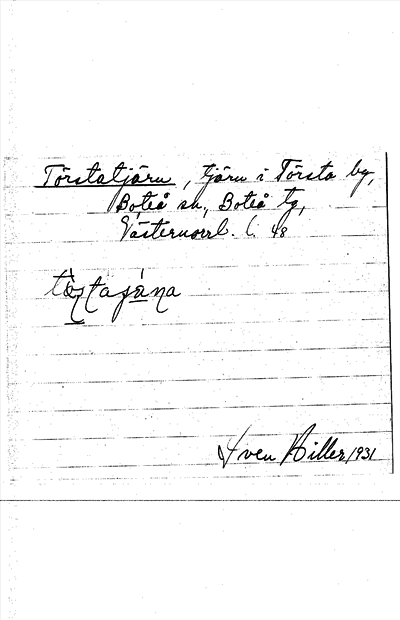 Törstatjärn, tjärn i Törsta by,
Boteå sn, Boteå tg,
Västernorrl. l. 48
Sven Hiller 1931